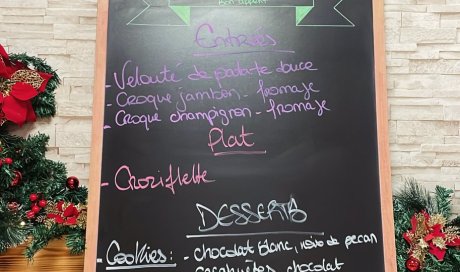 Bon appétit
Entrées
- Velouté de patate douce
- Croque jambon - fromage
- Croque champignon - fromage
Plat
- Croziflette
DESSERTS
- Cookies : - chocolat blanc, noix de pecan
cacahuètes chocolat